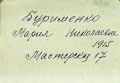 Буряменко
Мария Николаевна
1915
Мастерску 17